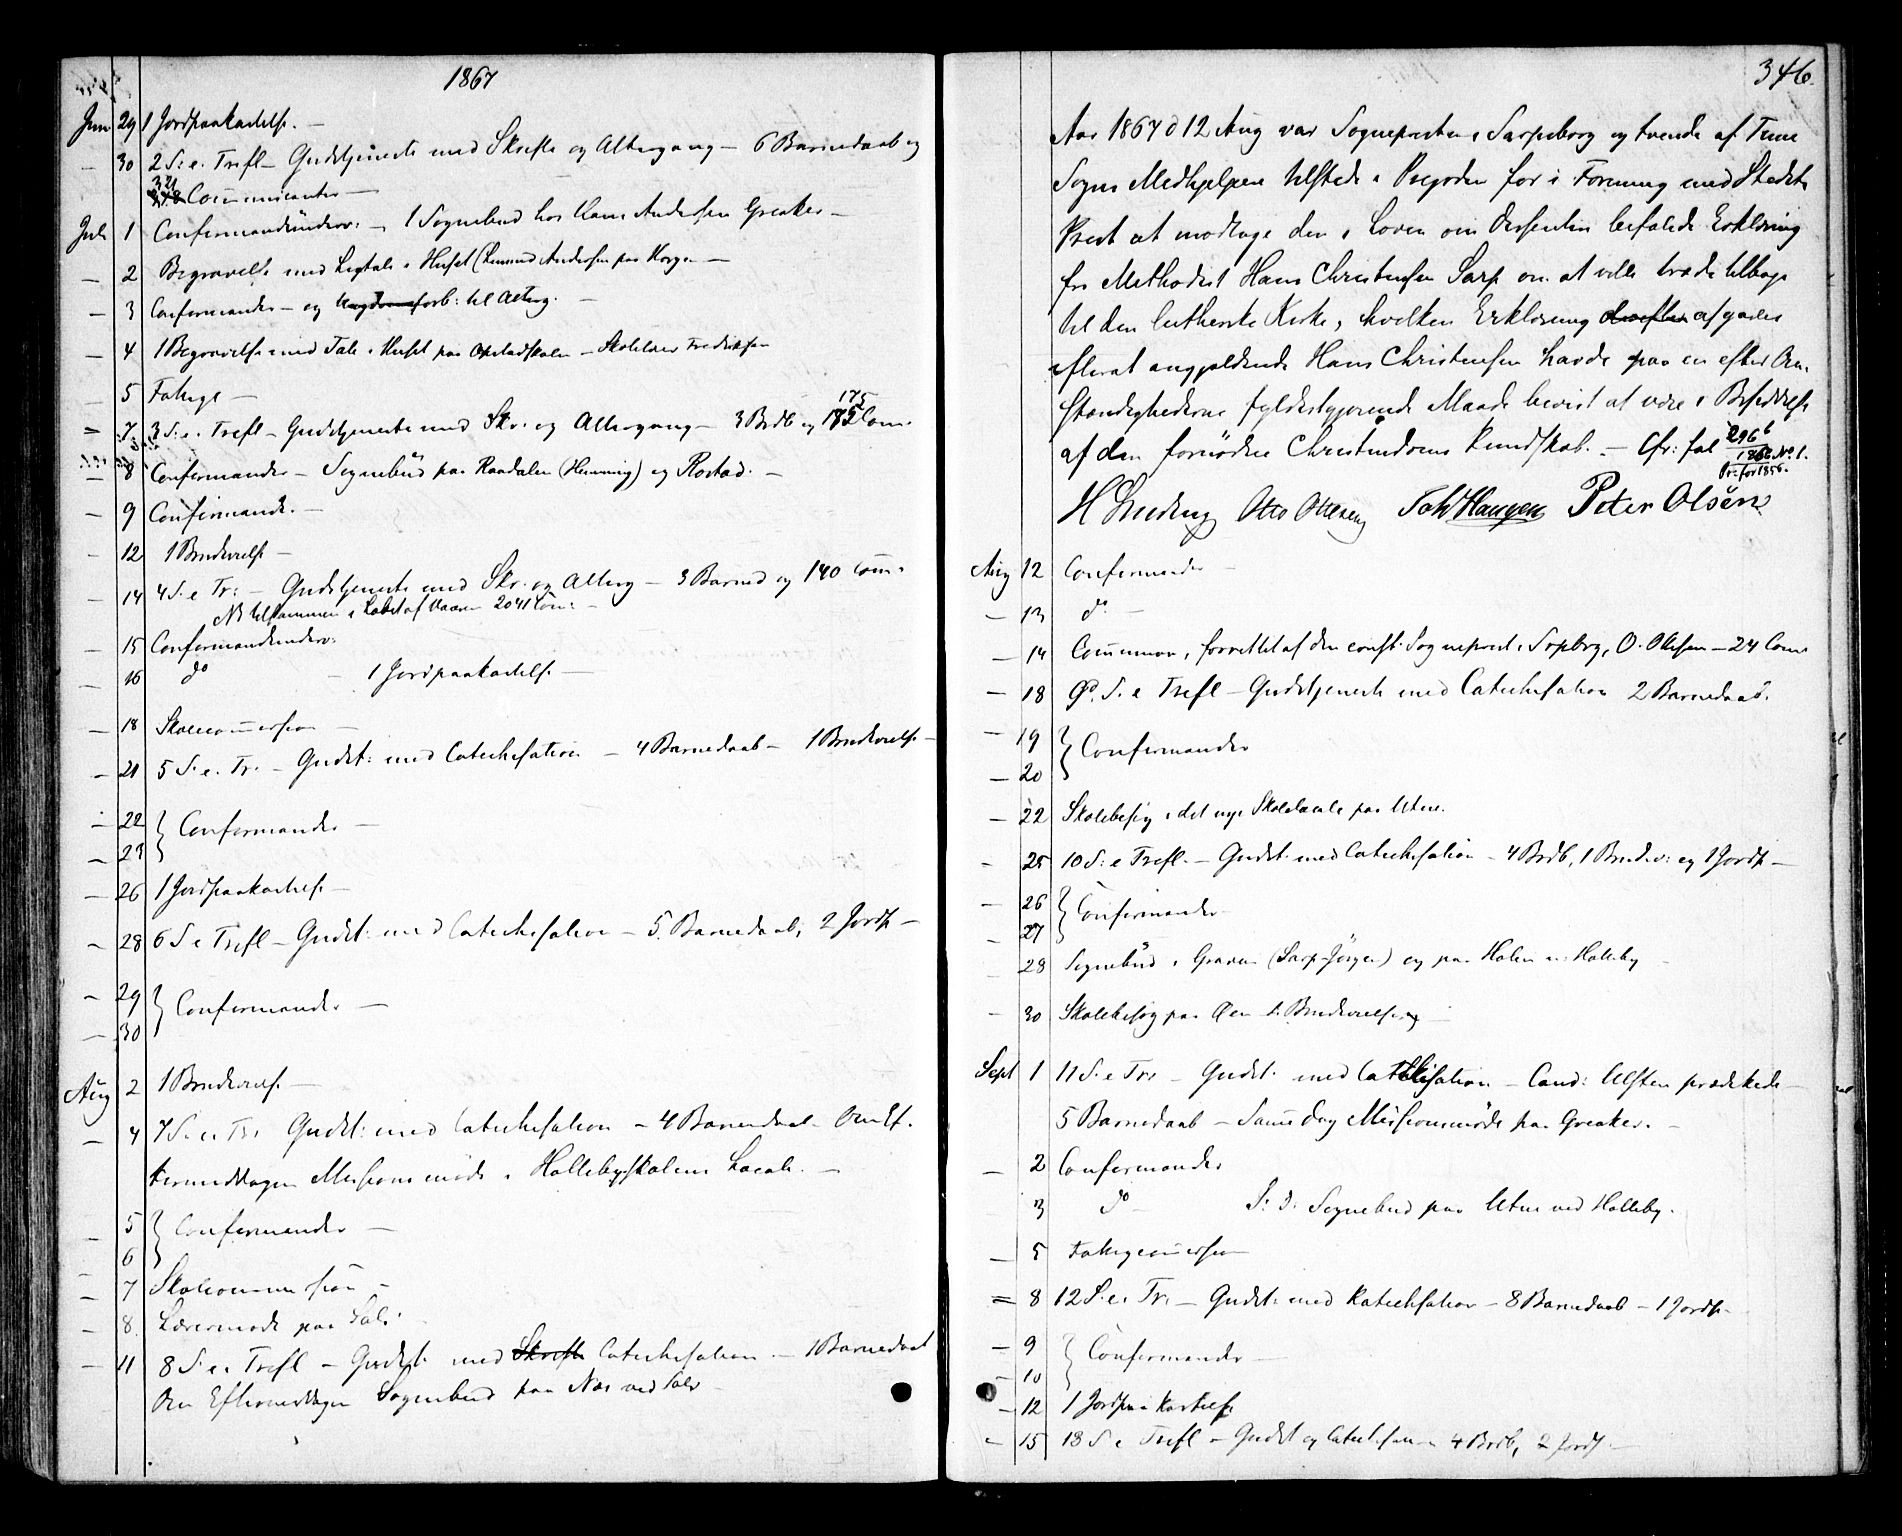 1867
Juni 29 1 Jordpaakastelse. —
— 30 2 S: e. Trefl — Gudstjeneste med Skrifte og Altergang — 6 Barnedaab og
321 Communicanter —
Juli 1 Confirmandunderv: — 1 Sognebud hos Hans Andersen Greaker —
— 2 Begravelse med Ligtale i Huset ( Andersen paa —
— 3 Confirmander — og forb: til Alterg. —
— 4 1 Begravelse med Tale i Huset paa Opstadskolen — Skolelærer Fredriksen
5 Fattigc —
— 7 3 S: e. Trefl — Gudstjeneste med Skr. og Altergang — 3 Brdb og 175 Com.
— 8 Confirmander — Sognebud paa Raadalen (Henning) og Rostad. —
— 9 Confirmande. —
— 12 1 Brudevielse —
— 14 4 S. e Tr: — Gudstjeneste med Skr. og Alterg — 3 Barned og 140 Com:
NB tilsammen i Løbet af Vaaren 2041 Com: —
— 15 Confirmandunderv:
— 16 do — 1 Jordpaakastelse. —
— 18 Skolecommission —
— 21 5 S. e. Tr. — Gudst: med Catechisation — 4 Barnedaab — 1 Brudevielse —
— 22
— 23 } Confirmander —
— 26 1 Jordpaakastelse —
— 28 6 S e Trefl — Gudst: med Catechisation — 5 Barnedaab, 2 Jordp —
— 29
— 30 } Confirmander —
Aug 2 1 Brudevielse. —
— 4 7 S. e. Tr: Gudst: med Catechisation — 4 Barnedaab — Om Ef-
termiddagen Missionsmøde i Hallebyskolens Locale. —
— 5
— 6 } Confirmander —
— 7 Skolecommission —
— 8. Lærermøde paa —
— 11 8 S. e. Trefl — Gudst. med Skrifte Catechisation — 1 Barnedaab
Om Eftermiddagen Sognebud paa Næs ved

346.
Aar 1867 d 12 Aug var Sognepresten i Sarpsborg og tvende af Tune
Sogns Medhjelpere tilstede i Pregaden for i Forening med Stedets
Prest at modtage den i Loven om Dissentere befalede Erklæring
fra Methodist Hans Christensen Sarp om at ville træde tilbage
til den lutherske Kirke, hvilken Erklæring derefter afgaves
efterat angjældende Hans Christensen havde paa en efter Om-
stændighederne fyldestgjørende Maade bevist at være i Besiddelse
af den fornødne Christendoms Kundskab. — Cfr: fol 296 b
1866 No. 1.
Pr: for 1856.
H Otto Ottesen Joh Haugen Peter Olsen
Aug 12 Confirmander —
— 13 do —
— 14 Communion, forrettet af den const. Sogneprest i Srpbrg, O. Ottesen — 24 Com:
— 18 9. S. e Trefl — Gudstjeneste med Catechisation 2 Barnedaab.
— 19
— 20 } Confirmander
— 22 Skolebesøg i det nye Skolelocale paa Utne.
— 25 10 S: e Trefl. — Gudst. med Catechisation — 4 Brdb, 1 Brudev: og 1 Jordp —
— 26
— 27 } Confirmander
— 28 Sognebud i Graven (Sarp-Jörgen) og paa Holen v: Halleby —
— 30 Skolebesøg paa 1. Brudevielse —
Sept 1 11 S. e Tr: — Gudst. med Catechisation — Cand: prædikede —
5 Barnedaab — Samme dag Missionsmøde paa Greaker. —
— 2 Confirmander
3 do — S: D: Sognebud paa Utne ved Halleby.
— 5 Fattigcommission
= 8 12 S. e. Tr. — Gudst. med Katechisation — 8 Barnedaab — 1 Jordp.
— 9
— 10 } Confirmander —
— 12 1 Jordpaakastelse
— 15 13 S e Trefl — Gudst og Catechisation 4 Brdb, 2 Jordp —